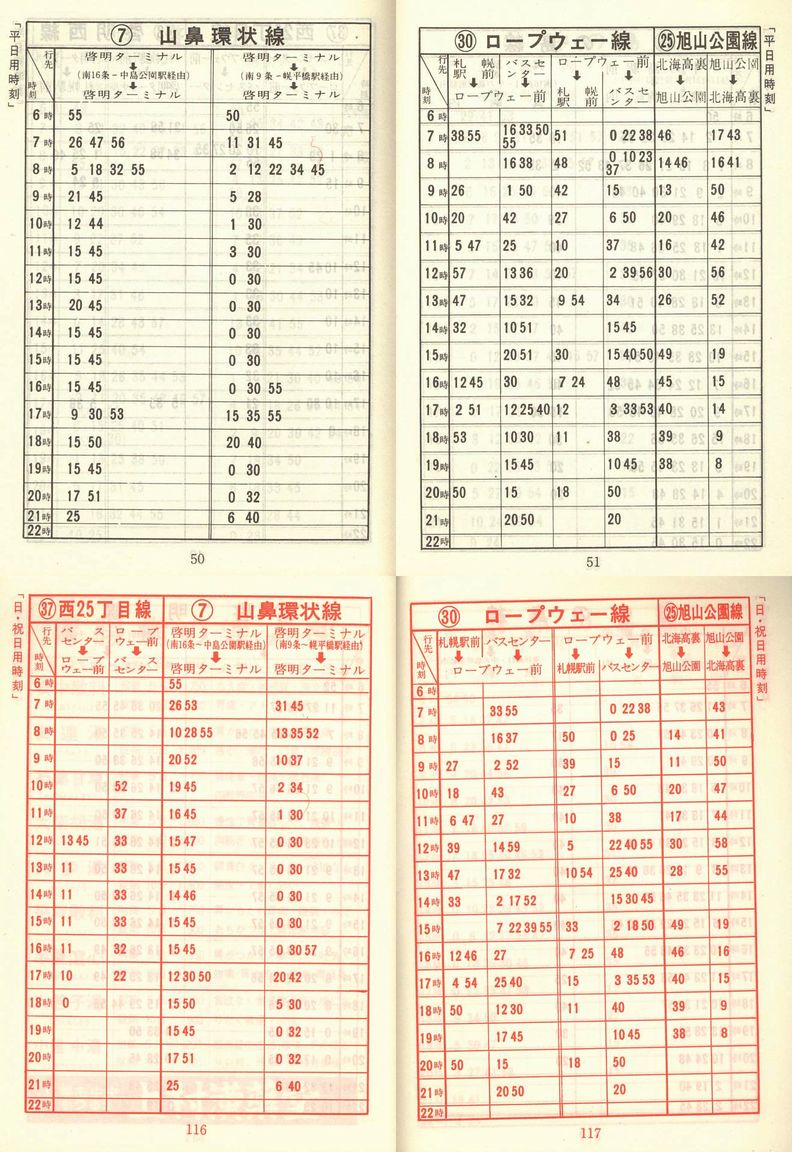 「平日用時刻」
⑦ 山鼻環状線
行先 時刻 啓明ターミナル (南16条−中島公園駅経由) 啓明ターミナル 啓明ターミナル (南9条−幌平橋駅経由) 啓明ターミナル
6時 55 50
7時 26 47 56 11 31 45
8時 5 18 32 55 2 12 22 34 45
9時 21 45 5 28
10時 12 44 1 30
11時 15 45 3 30
12時 15 45 0 30
13時 20 45 0 30
14時 15 45 0 30
15時 15 45 0 30
16時 15 45 0 30 55
17時 9 30 53 15 35 55
18時 15 50 20 40
19時 15 45 0 30
20時 17 51 0 32
21時 25 6 40
22時
50
「平日用時刻」
㉚ ロープウェー線 ㉕旭山公園線
行先 時刻 札幌駅前 バスセンター ロープウェー前 ロープウェー前 札幌駅前 バスセンター 北海高裏 旭山公園 旭山公園 北海高裏
6時
7時 38 55 16 33 50 55 51 0 22 38 46 17 43
8時 16 38 48 0 10 23 37 14 46 16 41
9時 26 1 50 42 15 13 50
10時 20 42 27 6 50 20 46
11時 5 47 25 10 37 16 42
12時 57 13 36 20 2 39 56 30 56
13時 47 15 32 9 54 34 26 52
14時 32 10 51 15 45
15時 20 51 30 15 40 50 49 19
16時 12 45 30 7 24 48 45 15
17時 2 51 12 25 40 12 3 33 53 40 14
18時 53 10 30 11 38 39 9
19時 15 45 10 45 38 8
20時 50 15 18 50
21時 20 50 20
22時
51
「日・祝日用時刻」
㊲西25丁目線 ⑦ 山鼻環状線
行先 時刻 バスセンター ロープウェー前 ロープウェー前 バスセンター 啓明ターミナル (南16条〜中島公園駅経由) 啓明ターミナル 啓明ターミナル (南9条〜幌平橋駅経由) 啓明ターミナル
6時 55
7時 26 53 31 45
8時 10 28 55 13 35 52
9時 20 52 10 37
10時 52 19 45 2 34
11時 37 16 45 1 30
12時 13 45 33 15 47 0 30
13時 11 33 15 45 0 30
14時 11 33 14 46 0 30
15時 11 33 15 45 0 30
16時 11 32 15 45 0 30 57
17時 10 22 12 30 50 20 42
18時 0 15 50 5 30
19時 15 45 0 32
20時 17 51 0 32
21時 25 6 40
22時
116
「日・祝日用時刻」
㉚ ロープウェー線 ㉕旭山公園線
行先 時刻 札幌駅前 バスセンター ロープウェー前 ロープウェー前 札幌駅前 バスセンター 北海高裏 旭山公園 旭山公園 北海高裏
6時
7時 33 55 0 22 38 43
8時 16 37 50 0 25 14 41
9時 27 2 52 39 15 11 50
10時 18 43 27 6 50 20 47
11時 6 47 27 10 38 17 44
12時 39 14 59 5 22 40 55 30 58
13時 47 17 32 10 54 25 40 28 55
14時 33 2 17 52 15 30 45
15時 7 22 39 55 33 2 18 50 49 19
16時 12 46 27 7 25 48 46 16
17時 4 54 25 40 15 3 35 53 40 15
18時 50 12 30 11 40 39 9
19時 17 45 10 45 38 8
20時 50 15 18 50
21時 20 50 20
22時
117